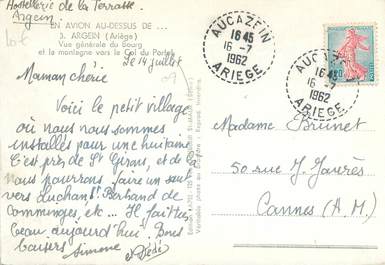 Hostellerie de la Terrasse
Argein.
EN AVION AU-DESSUS DE ...
3. ARGEIN (Ariège)
Vue générale du Bourg
et la montagne vers le Col du Portet
le 14 juillet
Maman chérie
Voici le petit village
où nous nous sommes
installés pour une huitaine
C'est près de St Girons, et de là
nous pourrons faire un saut
vers Luchon St Bertrand de
Comminges, etc... Il fait très
beau aujourd'hui. Bons
baisers Simone et Dédé
AUCAZEIN
16 45
16-7
1962
ARIEGE
AUCAZEIN
16 45
16-7
1962
ARIEGE
Madame Brunet
50 rue J. Jaurès
Cannes (A.M.)